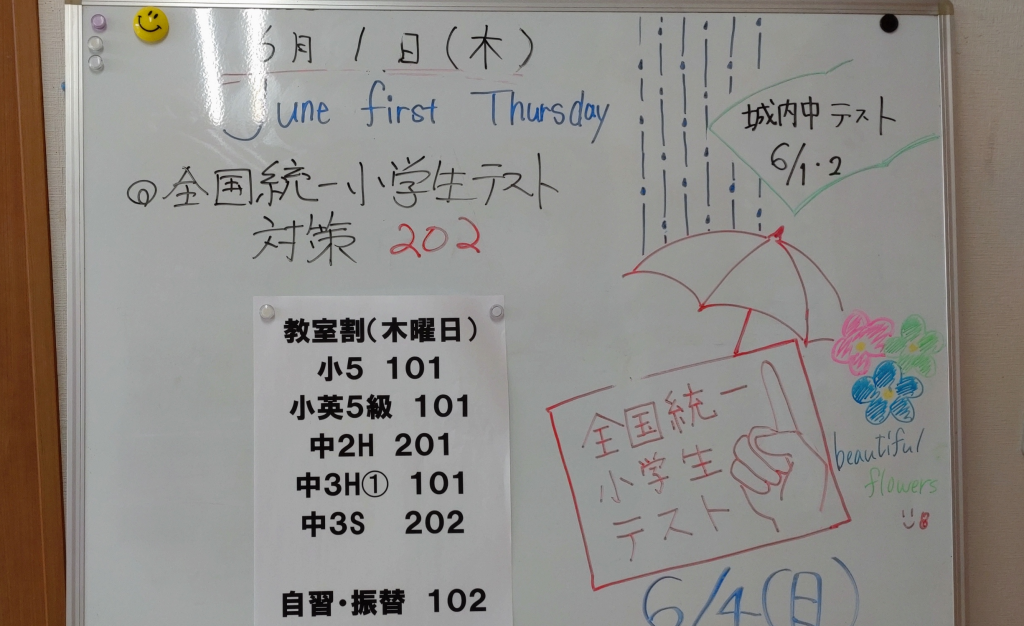 6月1日(木)
June first Thursday
◎全国統一小学生テスト
対策 202
城内中テスト
6/1・2
教室割(木曜日)
小5 101
小英5級 101
中2H 201
中3H① 101
中3S 202
自習・振替 102
全国統一
小学生
テスト
6/4(日)
beautiful
flowers